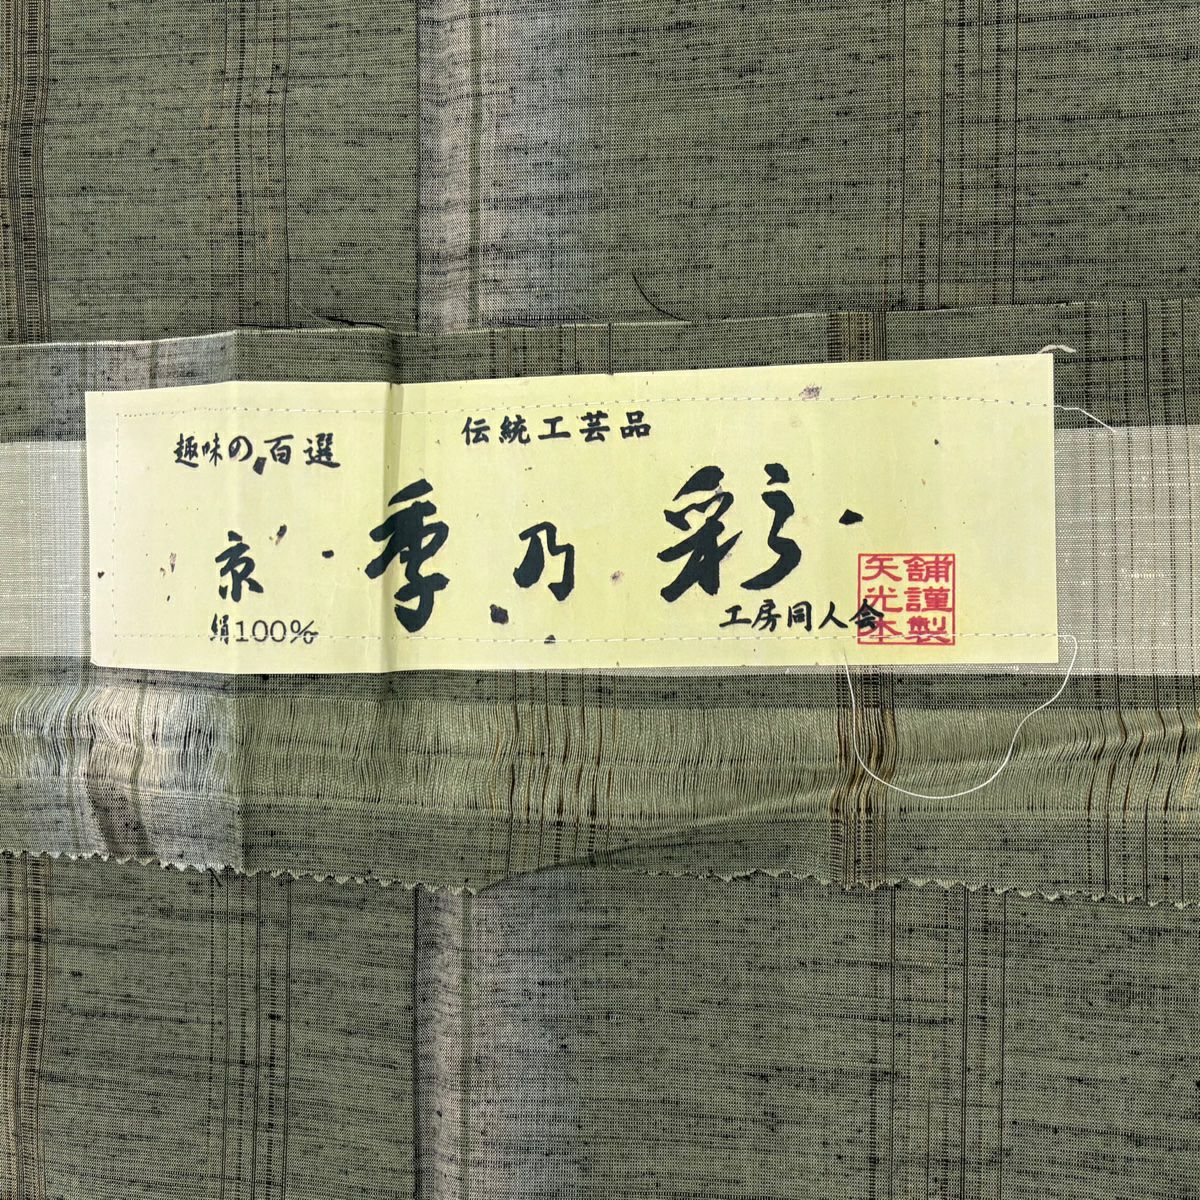 趣味の百選
伝統工芸品
京
季乃彩
絹100%
工房同人会
舗謹製
矢光本